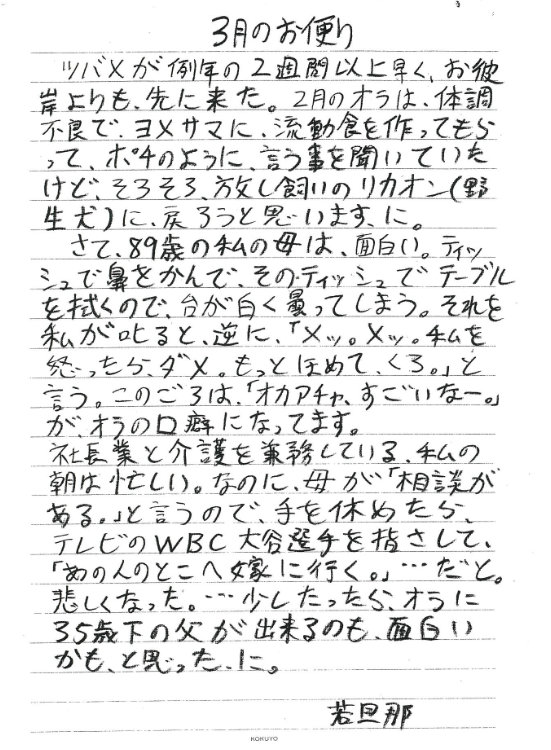 3月のお便り
ツバメが例年の2週間以上早く、お彼
岸よりも、先に来た。2月のオラは、体調
不良で、ヨメサマに、流動食を作ってもら
って、ポチのように、言う事を聞いていた
けど、そろそろ、放し飼いのリカオン(野
生犬)に、戻ろうと思います、に。
さて、89歳の私の母は、面白い。ティッ
シュで鼻をかんで、そのティッシュでテーブル
を拭くので、台が白く曇ってしまう。それを
私が叱ると、逆に、「メッ。メッ。私を
怒ったら、ダメ。もっとほめて、くろ。」と
言う。このごろは、「オカアチャ、すごいなー。」
が、オラの口癖になってます。
社長業と介護を兼務している、私の
朝は忙しい。なのに、母が「相談が
ある。」と言うので、手を休めたら、
テレビのWBC大谷選手を指さして、
「あの人のとこへ嫁に行く。」…だと。
悲しくなった。…少したったら、オラに
35歳下の父が出来るのも、面白い
かも、と思った、に。
若旦那
KOKUYO